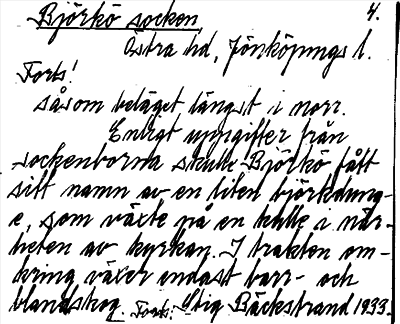 Björkö socken 4.
Östra hd, Jönköpings l.
Forts!
såsom beläget längst i norr.
Enligt uppgifter från
sockenborna skulle Björkö fått
sitt namn av en liten björkdung-
e, som växte på en kulle i när-
heten av kyrkan. I trakten om-
kring växer endast barr- och
blandskog. Forts. Stig Bäckstrand 1933.